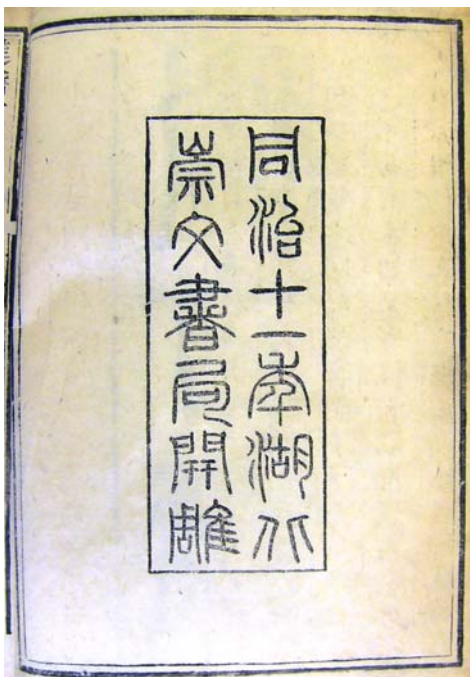 同治十一年湖北
崇文書局開雕